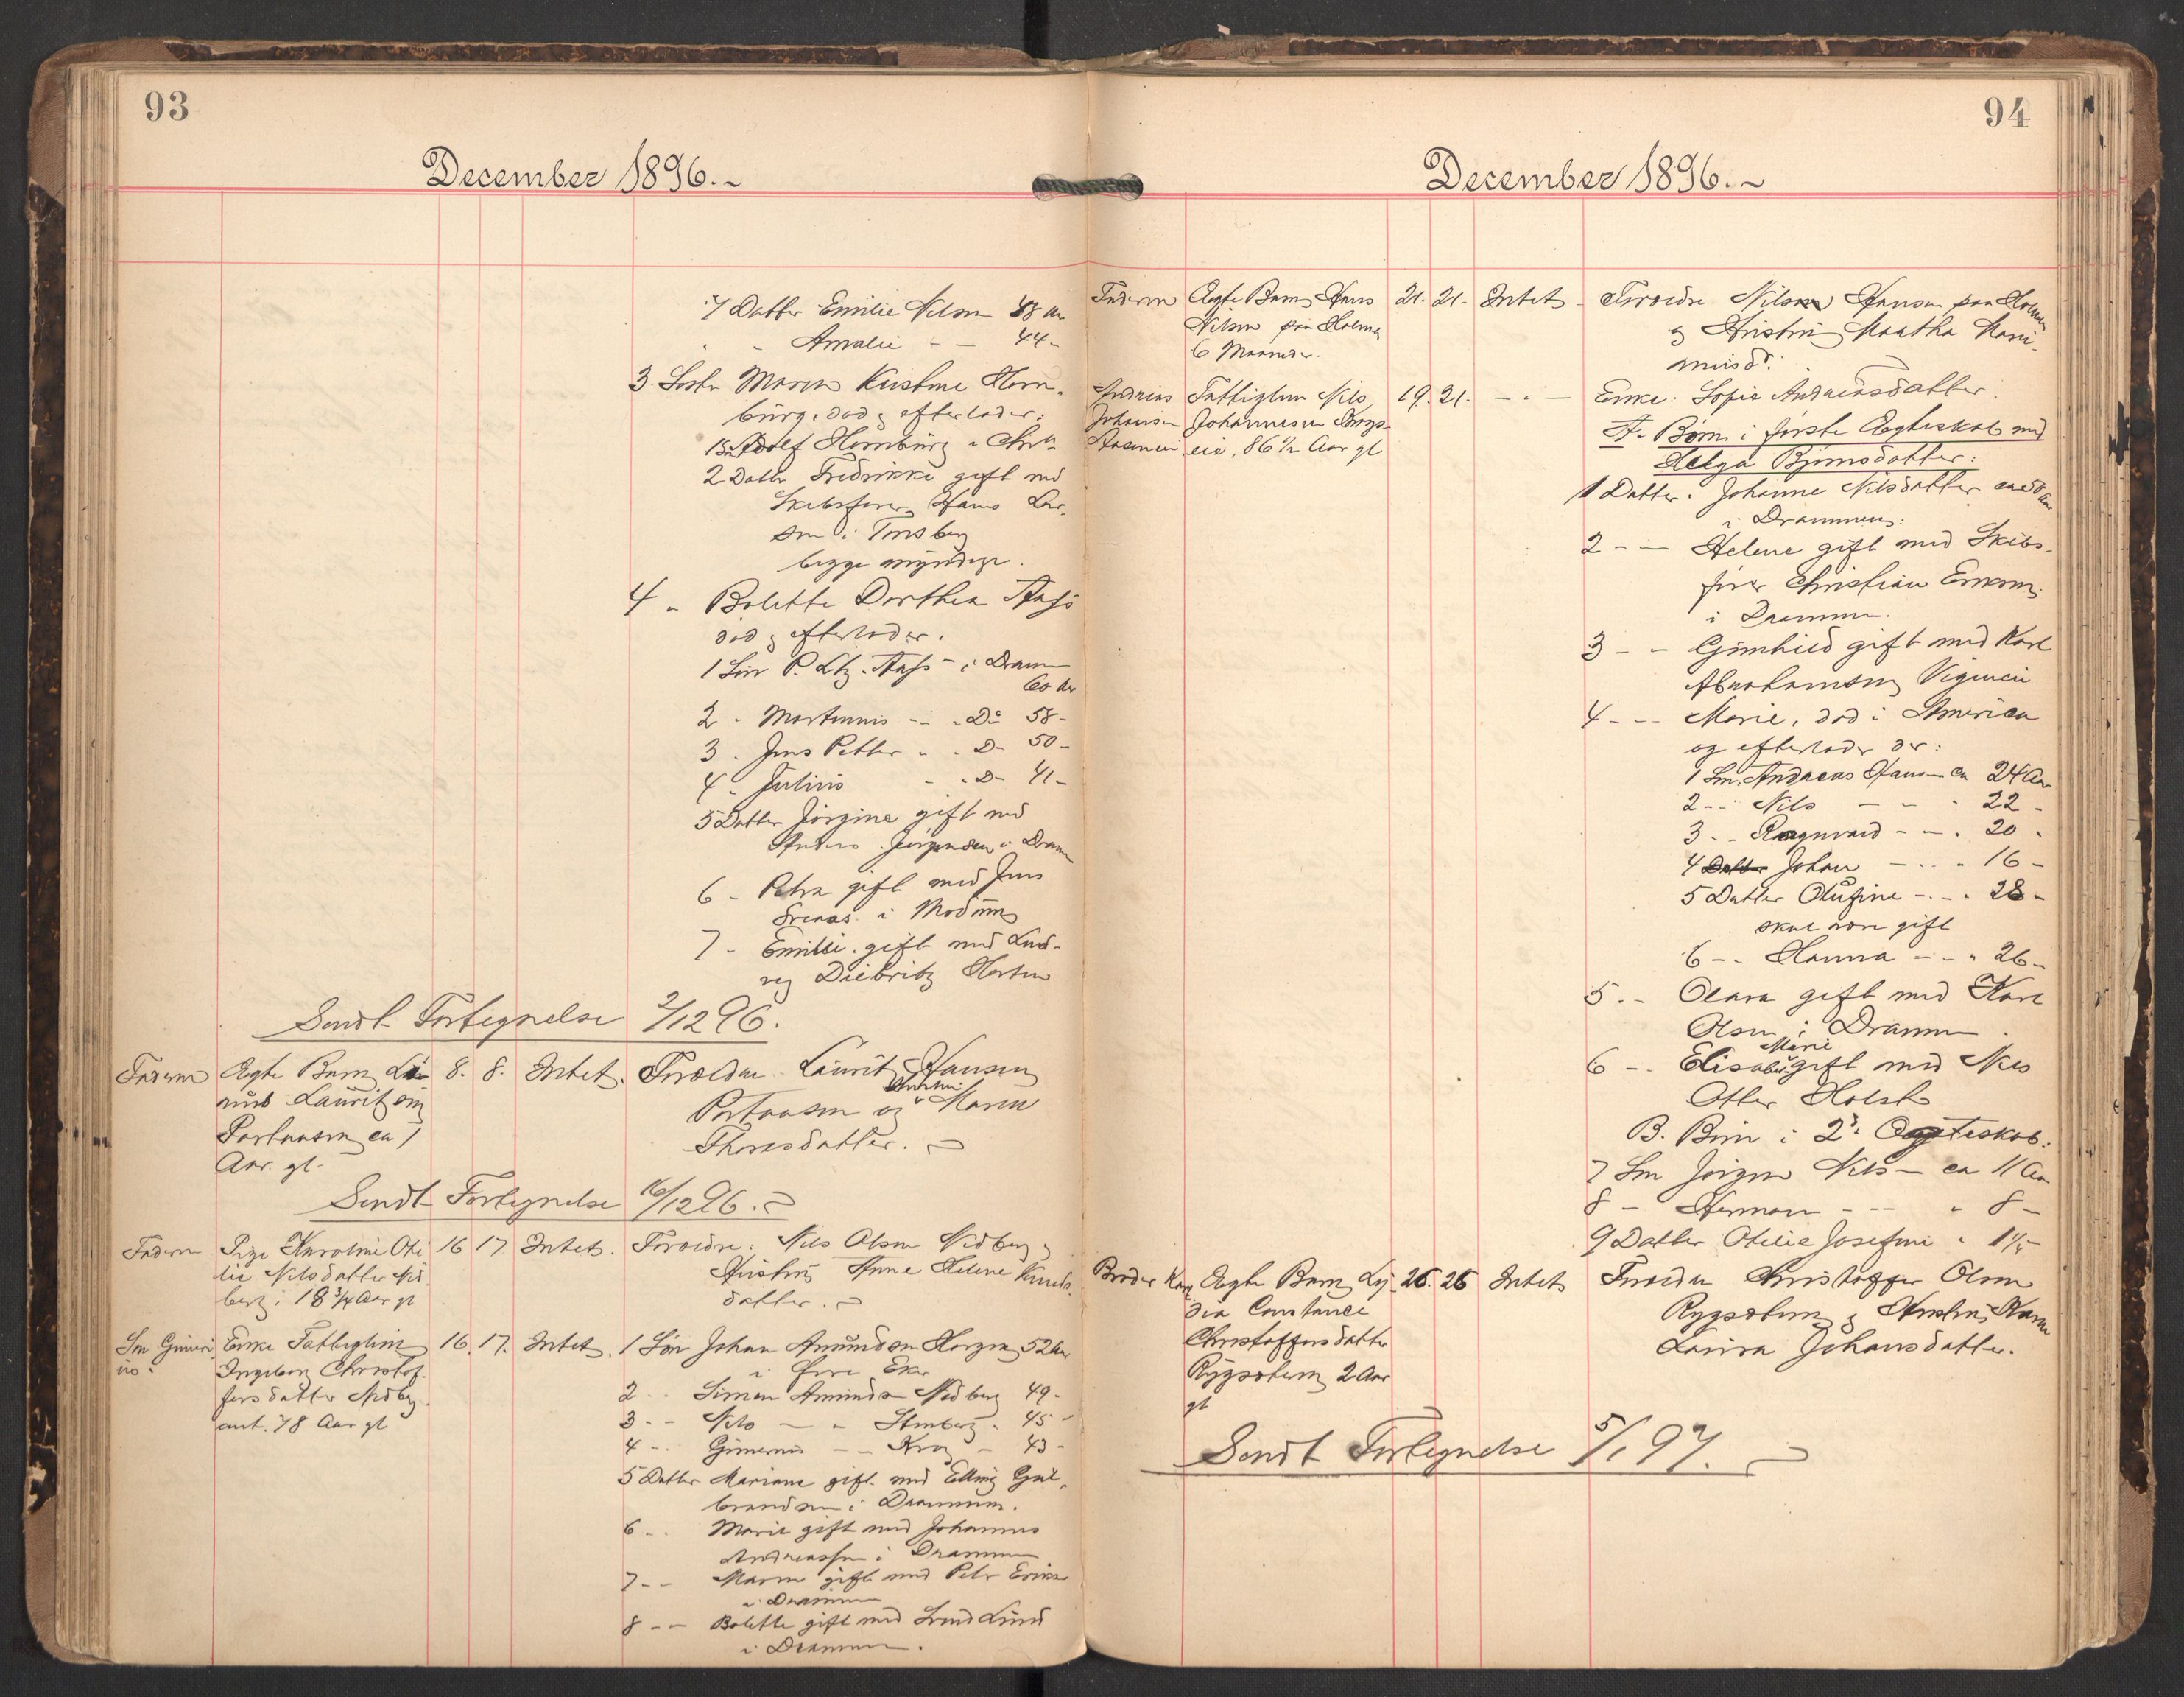 93
December 1896.
7 Datter Emilie Nilsen 48 Aar
" - Amalie - - 44 -
3. Søster Maren Kristine Horn-
burg, død & efterlader:
1 Søn Adolf Hornburg i Chra
2 Datter Fredrikke gift med
Skibsfører Hans Lar-
sen i Tønsberg
begge myndige.
4 " Bolette Dorthea Aass
død & efterlader.
1 Søn P. Ltz. Aass - i Dramm
60 Aar
2 - Martinius - - Do 58 -
3 - Jens Petter - - D- 50 -
4 - Julius - - D- 41 -
5 Datter Jørgine gift med
Anders Jørgensen i Dramm
6 - Petra gift med Jens
i Modum
7 - Emilie gift med Lud-
vig Diebritz Horten
Sendt Fortegnelse 2/12 96.
Faderen Ægte Barn 8. 8. Intet. Forældre Laurits Hansen
Lauritsen og Kristine Maren
ca 1 Thoresdatter.
Aar gl.
Sendt Fortegnelse 16/12 96.
Faderen Pige Karoline Oti 16 17 Intet. Forældre: Nils Olsen Nedberg &
lie Nilsdatter Ned Hustru Anne Helene Knuds
berg, 18 3/4 Aar gl datter.
Søn Gunerius Enke Fattiglem 16. 17. Intet. 1 Søn Johan Amundsen Horgen 52 Aar
Ingeborg Christof- i Øvre Eker
fersdatter Nedberg 2 - - Simen Amundsen Nedberg 49 -
ant. 78 Aar gl 3 - - Nils - - Stenberg - 45 -
4 - - Gunerius - - Krog - 43 -
5 Datter Mariane gift med Elling Gul-
brandsen i Drammen.
6 - - Marie gift med Johannes
Andreassen i Drammen
7 - - Maren gift med Petr Eriksen
i Drammen
8 - - Bolette gift med Svend Lund
i Drammen.
94
December 1896.
Faderen Ægte Barn Hans 21. 21. Intet - Forældre Nils Hansen paa Holmen
Nilsen paa Holmen & Hustru Maatha Mari-
6 Maaneder. musdr.
Andreas Fattiglem Nils 19. 21. - " - Enke: Sofie Andreasdatter.
Johansen Johannesen Krogs- A. Børn i første Ægteskab med
Aaserud eie, 86 1/2 Aar gl Helga Bjørnsdatter:
1 Datter. Johanne Nilsdatter ca 50 Aar
i Drammen:
2 - - Helene gift med Skibs-
fører Christian Eriksen
i Drammen.
3 - - Gunhild gift med Karl
Abrahamsen
4 - - Marie, død i Amerika
og efterlader der:
1 Søn. Andreas Hansen ca 24 Aar
2 - - Nils - - - 22 -
3 - - Ragnvald - - - 20 -
4 Datter Johan - - - 16 -
5 Datter Olufine - - - 28 -
skal være gift
6 - - Hanna - - " 26 -
5. - Olava gift med Karl
Olsen i Drammen.
6 - - Elisabet Marie gift med Nils
Otter Holst
B. Børn i 2det Ægteskab:
7 Søn Jørgen Nils- ca 11 Aar
8 - Herman - - " 8 -
9 Datter Otilie Josefine " 1 1/2 -
Broder Karl Ægte Barn Ly- 26. 26 Intet Forældre Christoffer Olsen
dia Constance Rygsetern & Hustru Karen
Christoffersdatter Laura Johansdatter.
Rygsetern 2 Aar
gl
Sendt Fortegnelse 5/1 97.